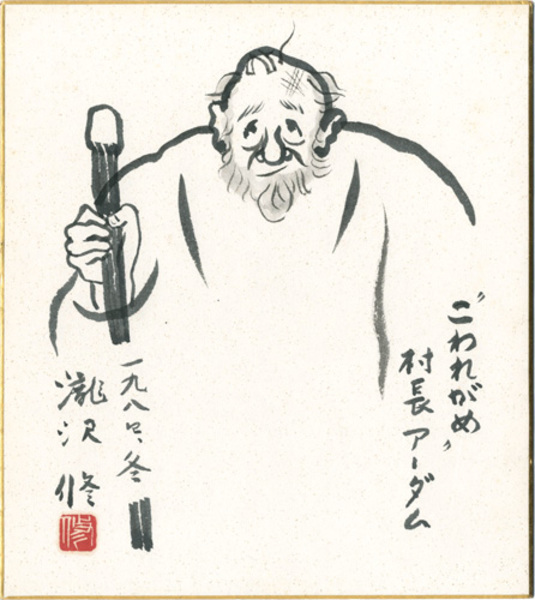 “こわれがめ”
村長 アーダム
一九八〇、冬
瀧沢 修
修